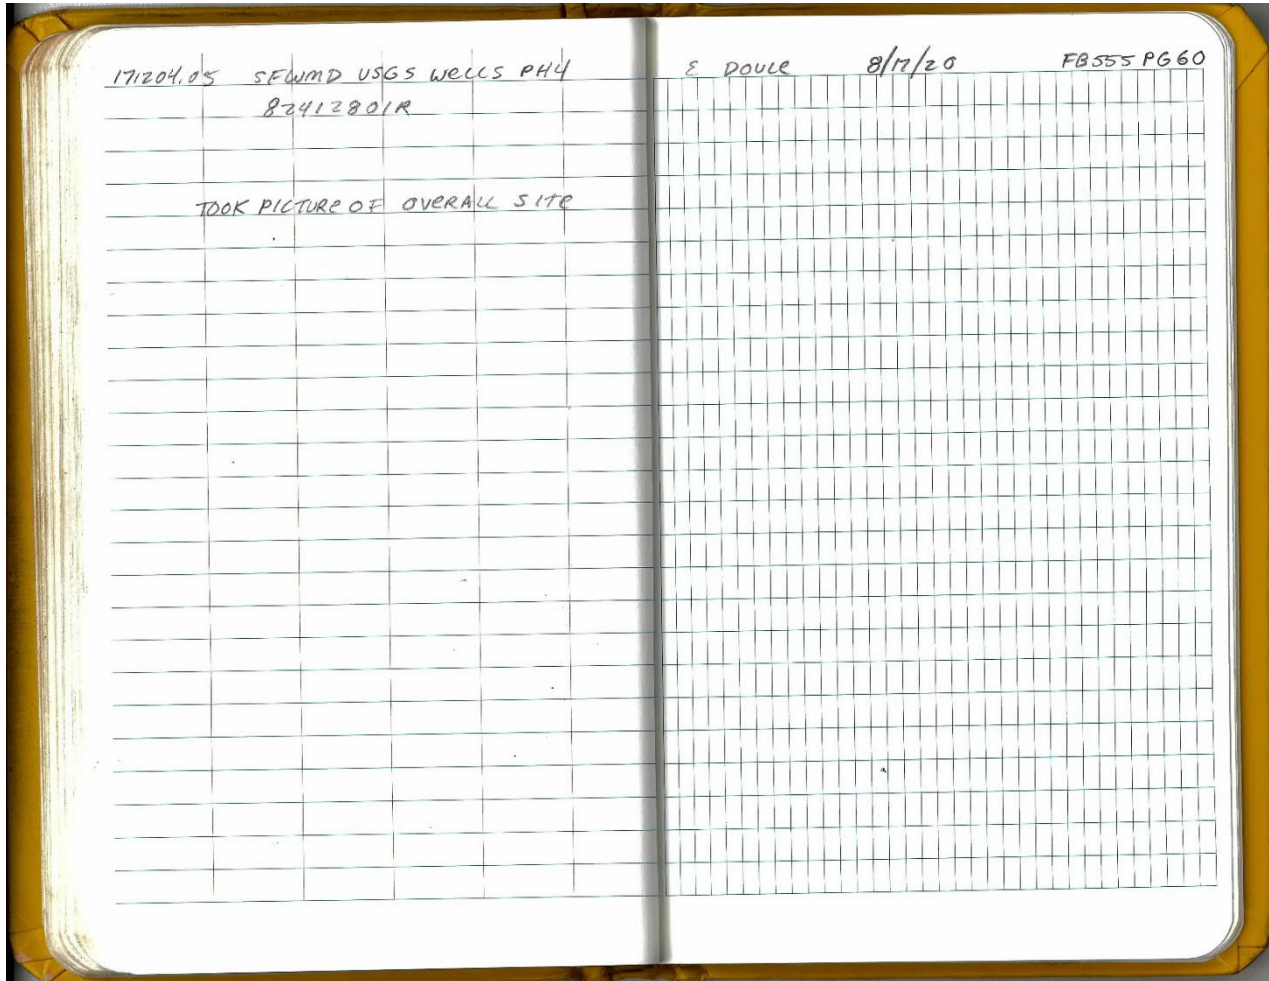 171204.05 SFWMD USGS WELLS PH4
82412801R
TOOK PICTURE OF OVERALL SITE
E DOULE 8/17/20 FB555 PG60